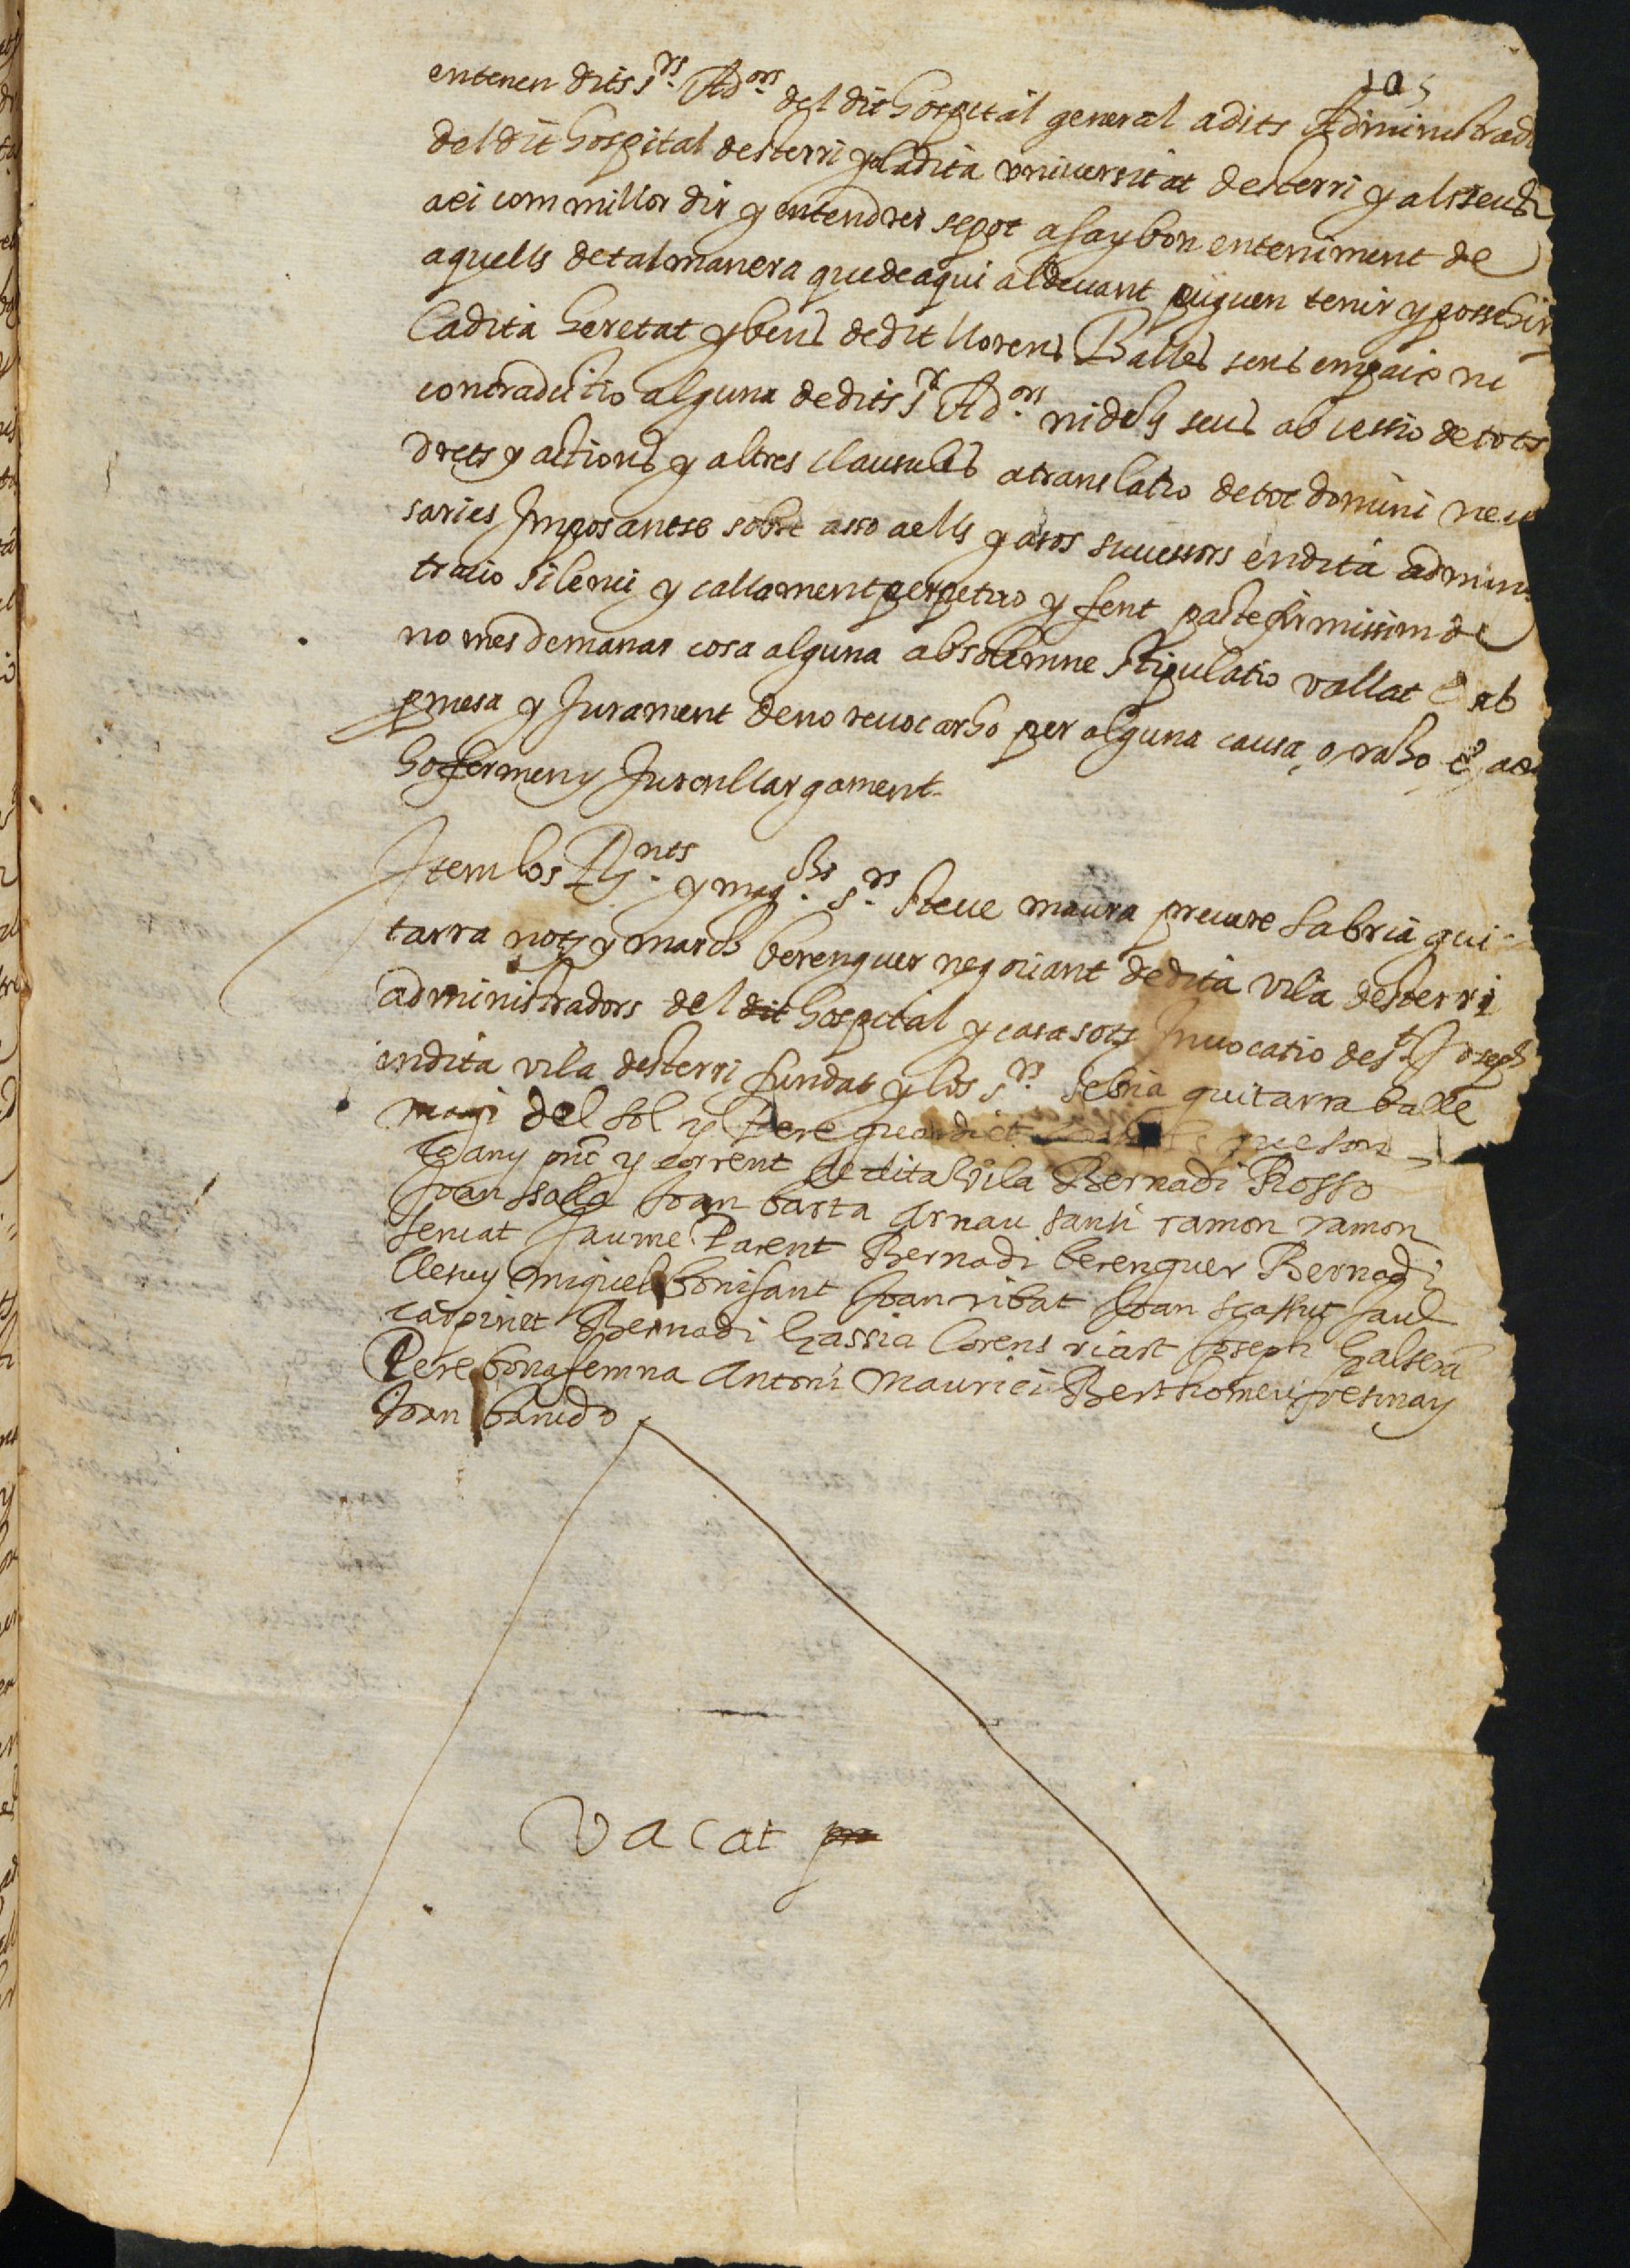 105
entenen dits s.rs Ad.ors del dit hospital general a dits Administrad
del dit hospital desterri y a la dita universitat desterri y als seus
aci com millor dir y entendrer se pot a sa y bon enteniment de
aquells de tal manera que de aqui al devant puguen tenir y possehir
la dita heretat y bens de dit llorens Balles sens empaig ni
contradictio alguna de dits s.rs Ad.ors ni dels seus ab cessio de tots
drets y actions y altres clausules a translatio de tot domini nece
saries Imposantse sobre asso a ells y a sos successors en dita admini
tracio silenci y callament perpetuo y fent pacte firmissim de
no mes demanar cosa alguna ab solemne stipulatio vallat & ab
pmesa y Jurament de no revocarho per alguna causa o raho & aci
ho fermen y Juren llargament
Item los y mag.chs s.rs Steve maura prevere Sabria gui
tarra nots y march berenguer negociant de dita vila desterri
administradors del dit hospital y casa sots Invocatio de s.t Joseph
en dita vila desterri fundat y los s.rs Sebria guitarra balle
magi del sol y Pere que son
le any pnt y corrent de dita vila Bernadi Rosso
Joan ssala Joan barta Arnau sansi ramon ramon
servat Jaume Parent Bernadi berenguer Bernadi
lleny miquel bonifant Joan ribat Joan Jaul
carpinet Bernadi Gassia lorens riart Joseph Galsera
Pere bonafemna Antoni Maurici Berthomeu
Joan
Vacat